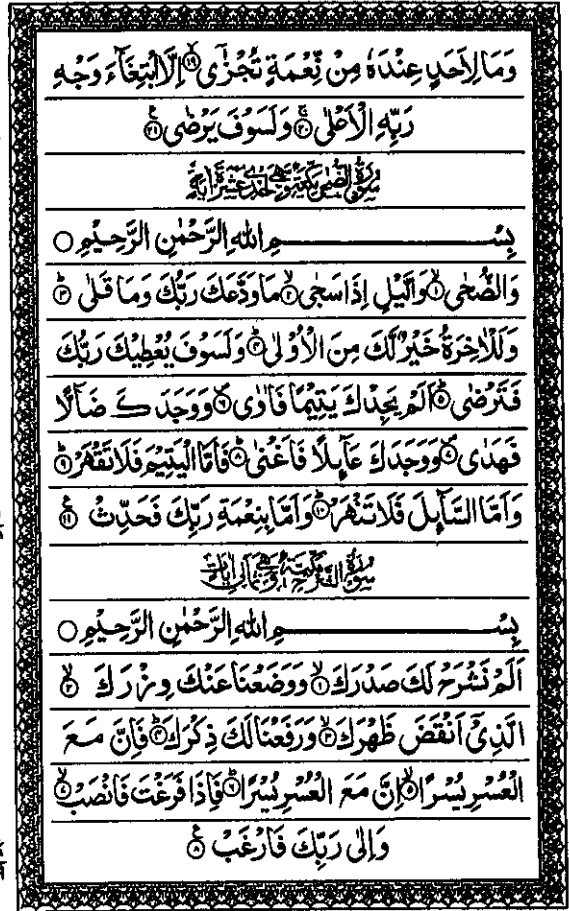 وَمَا لِاَحَدٍ عِنْدَهٗ مِنْ نِّعْمَةٍ تُجْزٰٓى ۙ﴿۱۹﴾ اِلَّا ابْتِغَآءَ وَجْهِ
رَبِّهِ الْاَعْلٰى ۚ﴿۲۰﴾ وَلَسَوْفَ يَرْضٰى ﴿۲۱﴾
سُوْرَةُ الضُّحٰى مَكِّيَّةٌ وَّهِيَ اِحْدٰى عَشَرَةَ اٰيَةً
بِسْمِ اللهِ الرَّحْمٰنِ الرَّحِيْمِ ○
وَالضُّحٰى ۙ﴿۱﴾ وَالَّيْلِ اِذَا سَجٰى ۙ﴿۲﴾ مَا وَدَّعَكَ رَبُّكَ وَمَا قَلٰى ؕ﴿۳﴾
وَلَلْاٰخِرَةُ خَيْرٌ لَّكَ مِنَ الْاُوْلٰى ؕ﴿۴﴾ وَلَسَوْفَ يُعْطِيْكَ رَبُّكَ
فَتَرْضٰى ؕ﴿۵﴾ اَلَمْ يَجِدْكَ يَتِيْمًا فَاٰوٰى ۪﴿۶﴾ وَوَجَدَكَ ضَآلًّا
فَهَدٰى ۪﴿۷﴾ وَوَجَدَكَ عَآئِلًا فَاَغْنٰى ؕ﴿۸﴾ فَاَمَّا الْيَتِيْمَ فَلَا تَقْهَرْ ؕ﴿۹﴾
وَاَمَّا السَّآئِلَ فَلَا تَنْهَرْ ؕ﴿۱۰﴾ وَاَمَّا بِنِعْمَةِ رَبِّكَ فَحَدِّثْ ﴿۱۱﴾
بِسْمِ اللهِ الرَّحْمٰنِ الرَّحِيْمِ ○
اَلَمْ نَشْرَحْ لَكَ صَدْرَكَ ۙ﴿۱﴾ وَوَضَعْنَا عَنْكَ وِزْرَكَ ۙ﴿۲﴾
الَّذِيْٓ اَنْقَضَ ظَهْرَكَ ۙ﴿۳﴾ وَرَفَعْنَا لَكَ ذِكْرَكَ ؕ﴿۴﴾ فَاِنَّ مَعَ
الْعُسْرِ يُسْرًا ۙ﴿۵﴾ اِنَّ مَعَ الْعُسْرِ يُسْرًا ؕ﴿۶﴾ فَاِذَا فَرَغْتَ فَانْصَبْ ۙ﴿۷﴾
وَاِلٰى رَبِّكَ فَارْغَبْ ﴿۸﴾